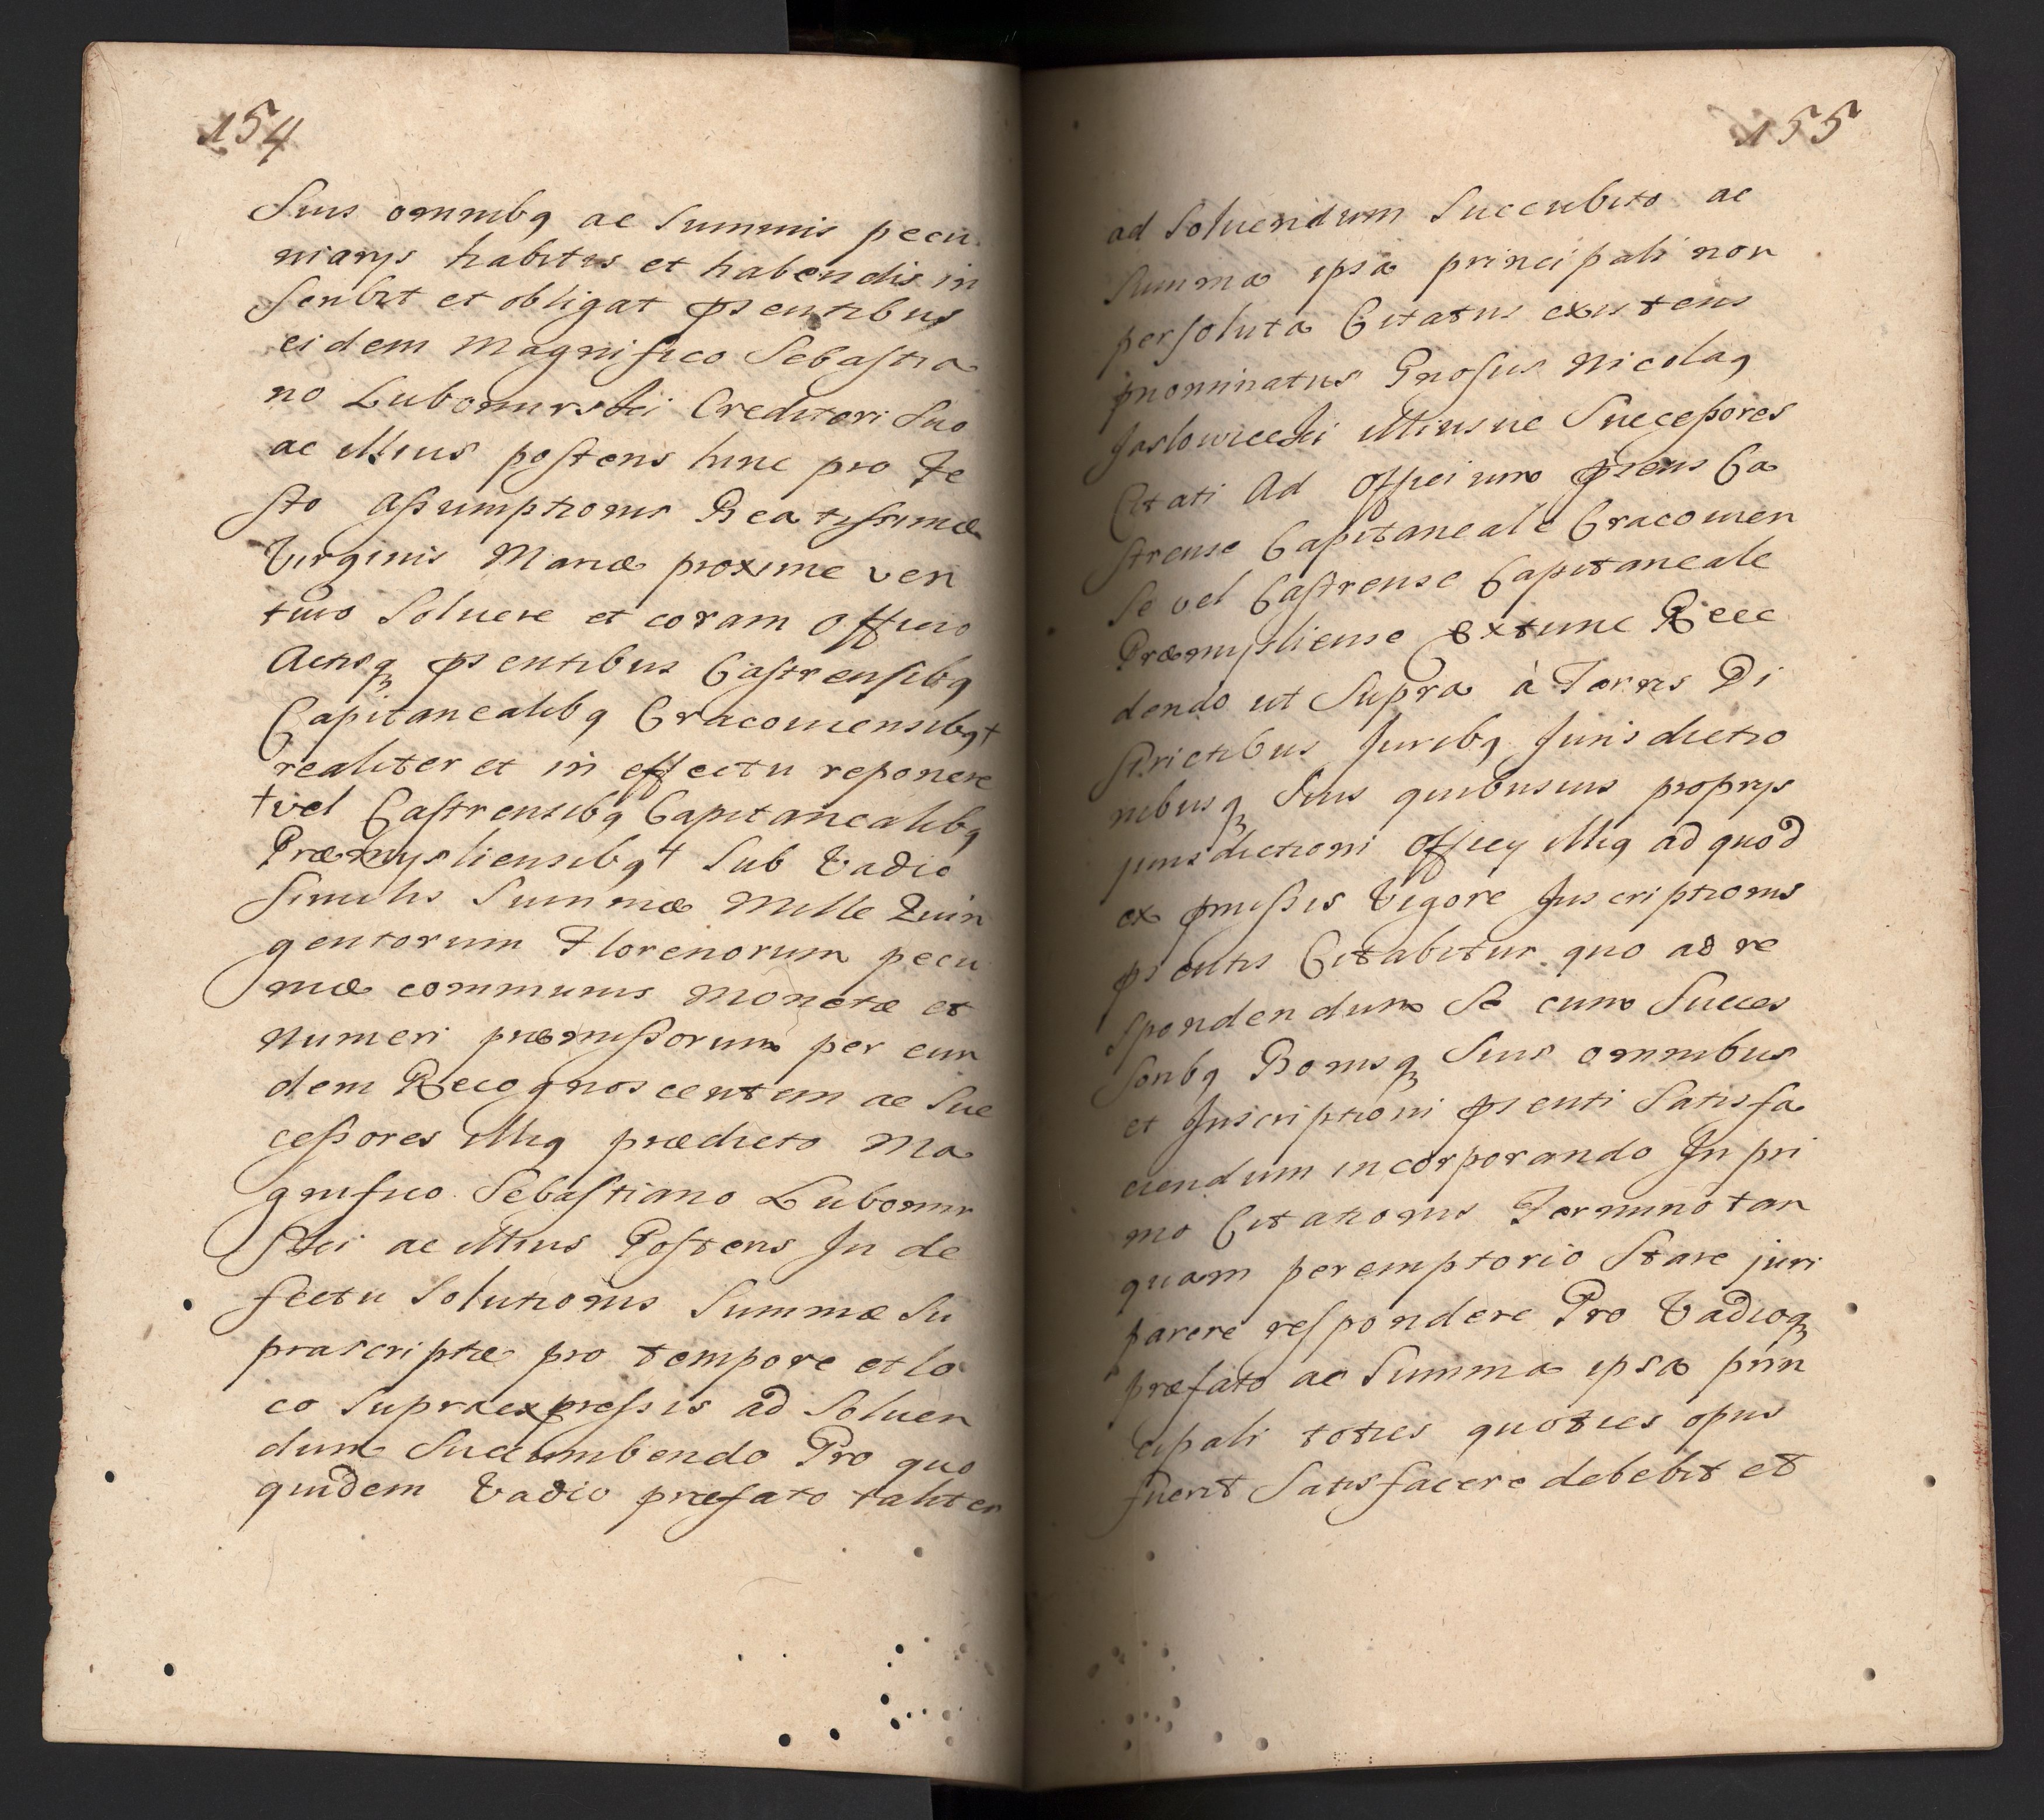 154
Suis omnibq ac Summis pecu
niarys habitis et habendis in
scribit et obligat pśentibus
eidem Magnifico Sebastia
no Lubomirskei Creditori Suo
ac illius posteris hinc pro Fe
sto Assumptionis Beatissimæ
Virginis Mariæ proxime ven
turo Soluere et coram Officio
Actisqʒ pśentibus Castrensibq
Capitanealibq Cracouiensibq+
realiter et in effectu reponere
+vel Castrensibq Capitanealibq
Præmysliensibq+ Sub Vadio
Similis Summæ Mille Quin
gentorum Florenorum pecu
niæ communis Monetæ et
Numeri præmissorum per eun
dem Recognoscentem ac Suc
cessores illiq prædicto Ma
gnifico Sebastiano Lubomir
skei ac illius Posteris In de
fectu Solutionis Summæ Su
prascriptæ pro tempore et lo
co supraexpressis ad Soluen
dum Succumbendo Pro quo
quidem Vadio præfato taliter
155
ad Soluendum Succubito ac
Summa ipsa principali non
persoluta Citatus existens
pnominatus Gnosus Nicolaq
Jaslowieckei illiusue Successores
Citati Ad Officium pśens Ca
strense Capitaneale Cracouien
se vel Castrense Capitaneale
Præmysliense extunc Rece
dendo ut Supra à Terris Di
strictibus Juribq Jurisdictio
nibusqʒ Suis quibusuis proprys
jurisdictioni Officy illiq ad quod
ex pmissis Vigore Inscriptionis
pśentis Citabitur quo ad re
spondendum Se cum Succes
soribq Bonisqʒ Suis omnibus
et Inscriptioni pśenti Satisfa
ciendum incorporando In pri
mo Citationis Termino tan
quam peremptorio Stare juri
parere respondere Pro Vadioqʒ
præfato ac Summa ipsa prin
cipali toties quoties opus
fuerit Satisfacere debebit et